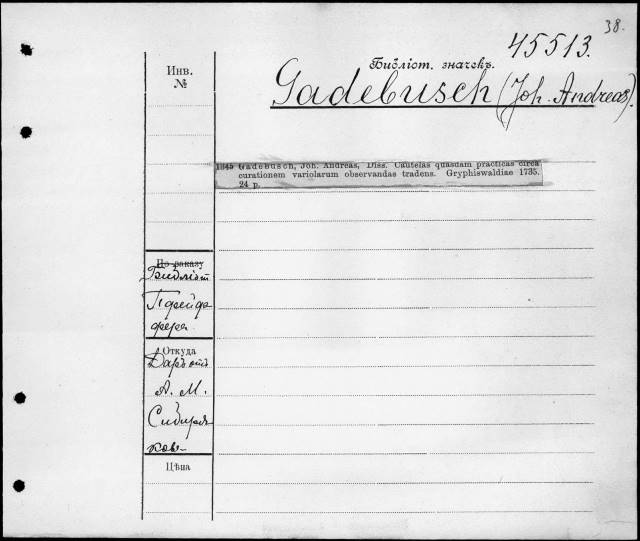 38.
45513.
Библіот. значекъ.
Gadebusch (Joh. Andreas).
Инв.
№
1845 Gadebusch, Joh. Andreas, Diss. Cautelas quasdam practicas circa
curationem variolarum observandas tradens. Gryphiswaldiae 1735.
24 p.
По заказу
Библіот
Пфейф
фера
Откуда
Даръ отъ
А. М.
Сибиря
кова
Цѣна